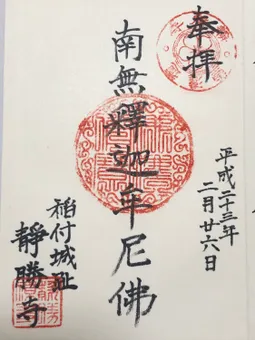 奉拝
平成二十三年
二月廿六日
南無釋迦牟尼佛
稻付城趾
靜勝寺